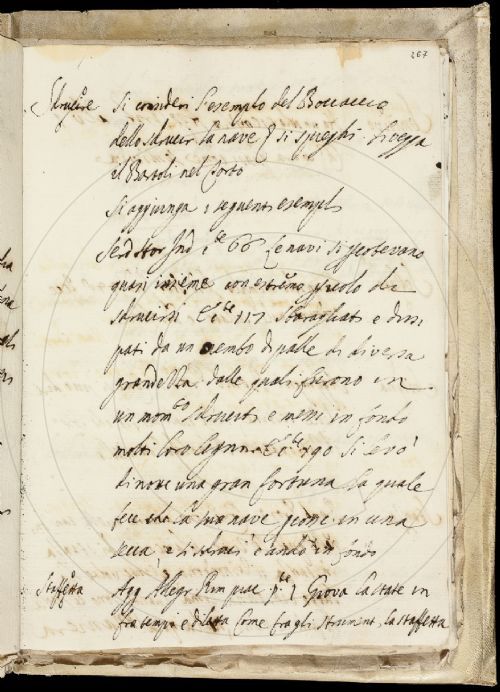 267
Sdrucire Si consideri l'esempio del Boccaccio
dello sdrucir la nave e si spieghi. Si vegga
il Bartoli nel Torto
Si aggiunga i seguenti esempli
Serd. Stor. Ind. 66 Le navi si
quasi insieme con estremo di
sdrucirsi E 117 Sbaragliati e dissi
pati da un nembo di palle di diversa
grandezza, dalle quali furono in
un mom.to sdruciti e messi in fondo
molti loro legni E 190 Si levò
di nuovo una gran fortuna la quale
fece che la sua nave in una
secca, e si sdrucì, e andò in fondo
Staffetta Agg. Allegr. Rim. piac. p.te 1 Giova la state in
fra tempo e Come fra gli strumenti, la staffetta